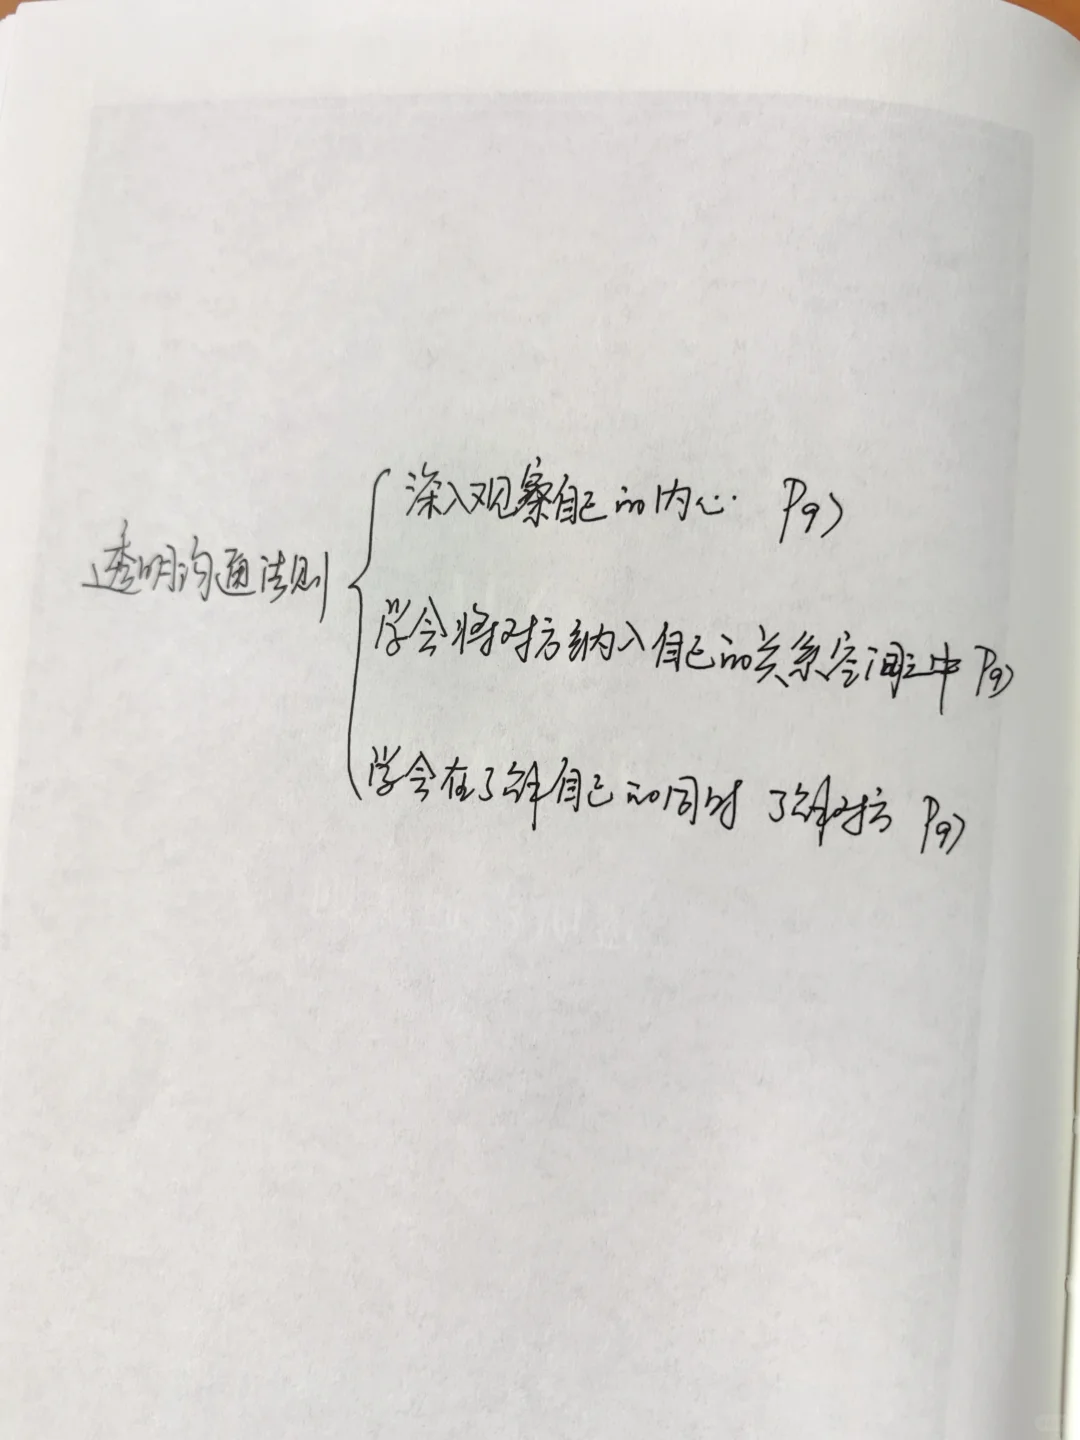 深入观察自己的内心. P97
透明沟通法则
学会将对方纳入自己的关系空间之中 P97
学会在了解自己的同时 了解对方 P97